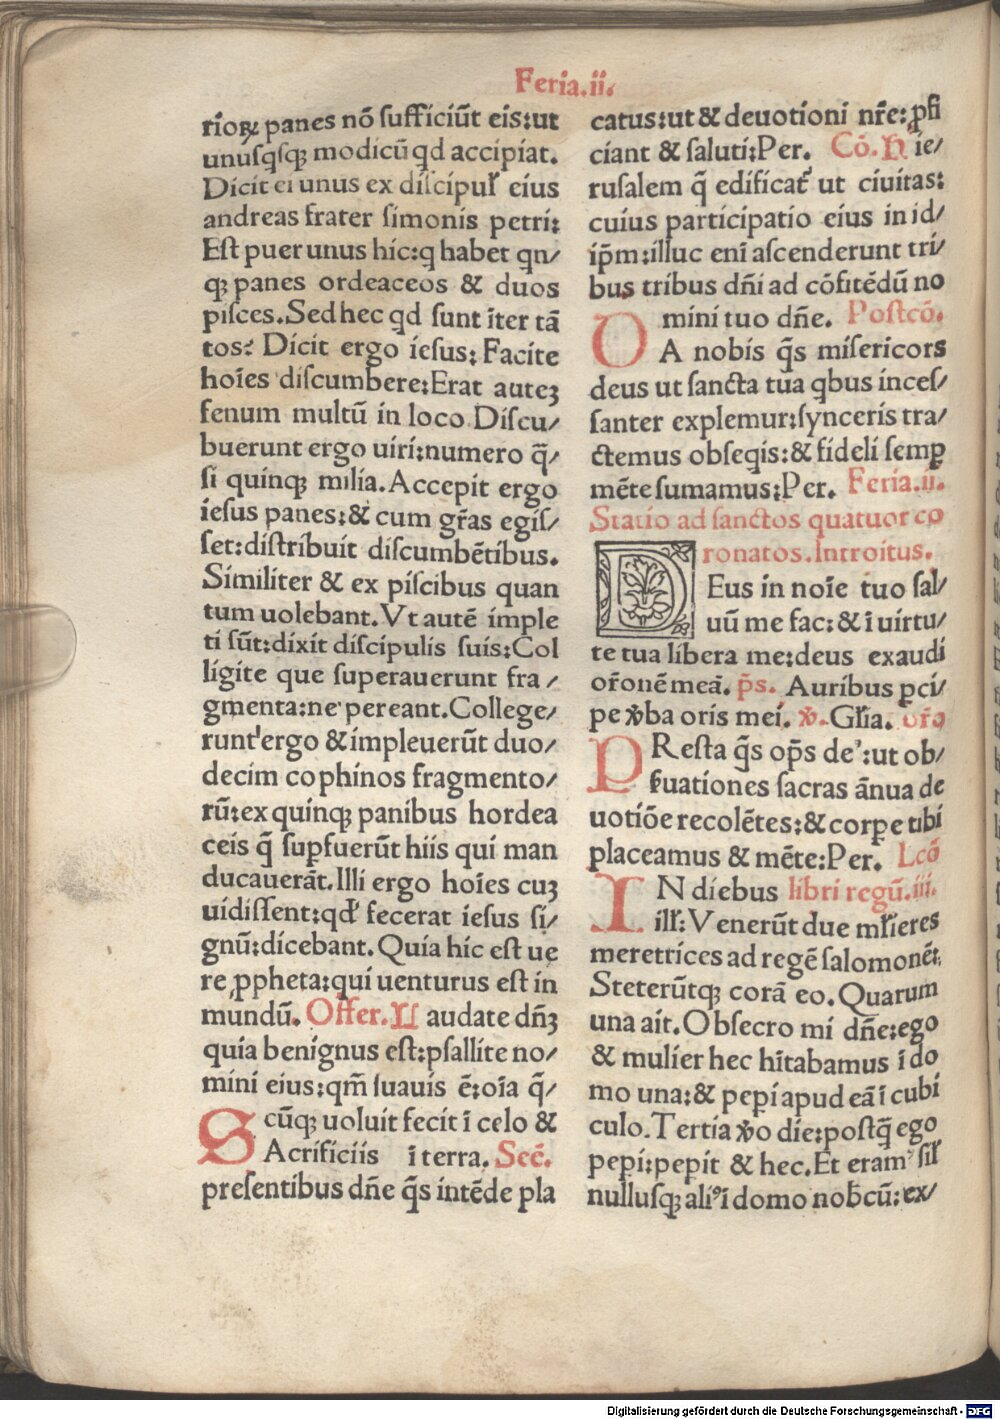 Feria.ii.
rioꝝ panes nō ſufficiūt eis:ut
unuſqſqꝫ modicū qd accipiat.
Dicit ei unus ex diſcipuł eius
andreas frater ſimonis petri:
Eſt puer unus hic:q habet qn/
qꝫ panes ordeaceos & duos
piſces.Sed hec qd ſunt īter tā
tos? Dicit ergo ieſus: Facite
hoīes diſcumbere:Erat auteꝫ
fenum multū in loco Diſcu/
buerunt ergo uiri:numero q̄/
ſi quinqꝫ milia.Accepit ergo
ieſus panes:& cum gr̄as egiſ/
ſet:diſtribuit diſcumbētibus.
Similiter & ex piſcibus quan
tum uolebant.Vt autē imple
ti ſūt:dixit diſcipulis ſuis:Col
ligite que ſuperauerunt fra/
gmenta:ne pereant.College/
runt ergo & impleuerūt duo/
decim cophinos fragmento/
rū:ex quinqꝫ panibus hordea
ceis q̄ ſuꝑfuerūt hiis qui man
ducauerāt.Illi ergo hoīes cuꝫ
uidiſſent:qđ fecerat ieſus ſi/
gnū:dicebant.Quia hic eſt ue
re ꝓpheta:qui uenturus eſt in
mundū. Offer. Laudate dn̄ꝫ
quia benignus eſt:pſallite no/
mini eius:qm̄ ſuauis ē:oīa q̄/
cūqꝫ uoluit fecit ī celo &
SAcrificiis ī terra. Secē.
preſentibus dn̄e q̄s intēde pla
catus:ut & deuotioni nr̄e:ꝓfi
ciant & ſaluti:Per. Cō. Hie/
ruſalem q̄ edificať ut ciuitas:
cuius participatio eius in id/
ip̄m:illuc eni aſcenderunt tri/
bus tribus dn̄i ad cōfitēdū no
mini tuo dn̄e. Poſtcō.
DA nobis q̄s miſericors
deus ut ſancta tua qbus inceſ/
ſanter explemur:ſynceris tra/
ctemus obſeqis:& fideli ſemꝑ
mēte ſumamus:Per. Feria.ii.
Statio ad ſanctos quatuor co
ronatos.Introitus.
DEus in noīe tuo ſal/
uū me fac:& ī uirtu/
te tua libera me:deus exaudi
or̄onē meā. p̄s. Auribus ꝑci/
pe ꝟba oris mei. ꝟ. Głia. or̄o
PReſta q̄s op̄s de':ut ob/
ſ̄uationes ſacras ānua de
uotiōe recolētes:& corꝑe tibi
placeamus & mēte:Per. Lcō
IN diebus libri regū.iii.
iłł: Venerūt due młieres
meretrices ad regē ſalomonē:
Steterūtqꝫ corā eo.Quarum
una ait.Obſecro mi dn̄e:ego
& mulier hec hītabamus ī do
mo una:& peperi apud eā ī cubi
culo.Tertia ꝟo die:poſtq̄ ego
peperi:peperit & hec.Et eram' ſił
nulluſqꝫ aliꝰ ī domo nob̄cū:ex/
Digitalisierung gefördert durch die Deutsche Forschungsgemeinschaft - DFG